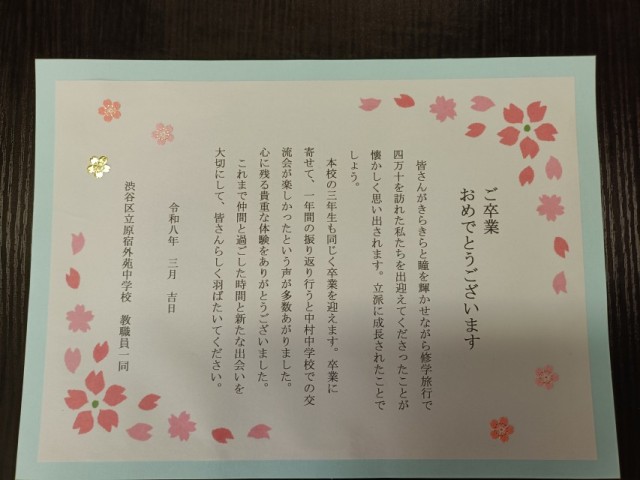 ご卒業
おめでとうございます
皆さんがきらきらと瞳を輝かせながら修学旅行で
四万十を訪れた私たちを出迎えてくださったことが
懐かしく思い出されます。立派に成長されたことで
しょう。
本校の三年生も同じく卒業を迎えます。卒業に
寄せて、一年間の振り返り行うと中村中学校での交
流会が楽しかったという声が多数あがりました。
心に残る貴重な体験をありがとうございました。
これまで仲間と過ごした時間と新たな出会いを
大切にして、皆さんらしく羽ばたいてください。
令和八年 三月 吉日
渋谷区立原宿外苑中学校 教職員一同